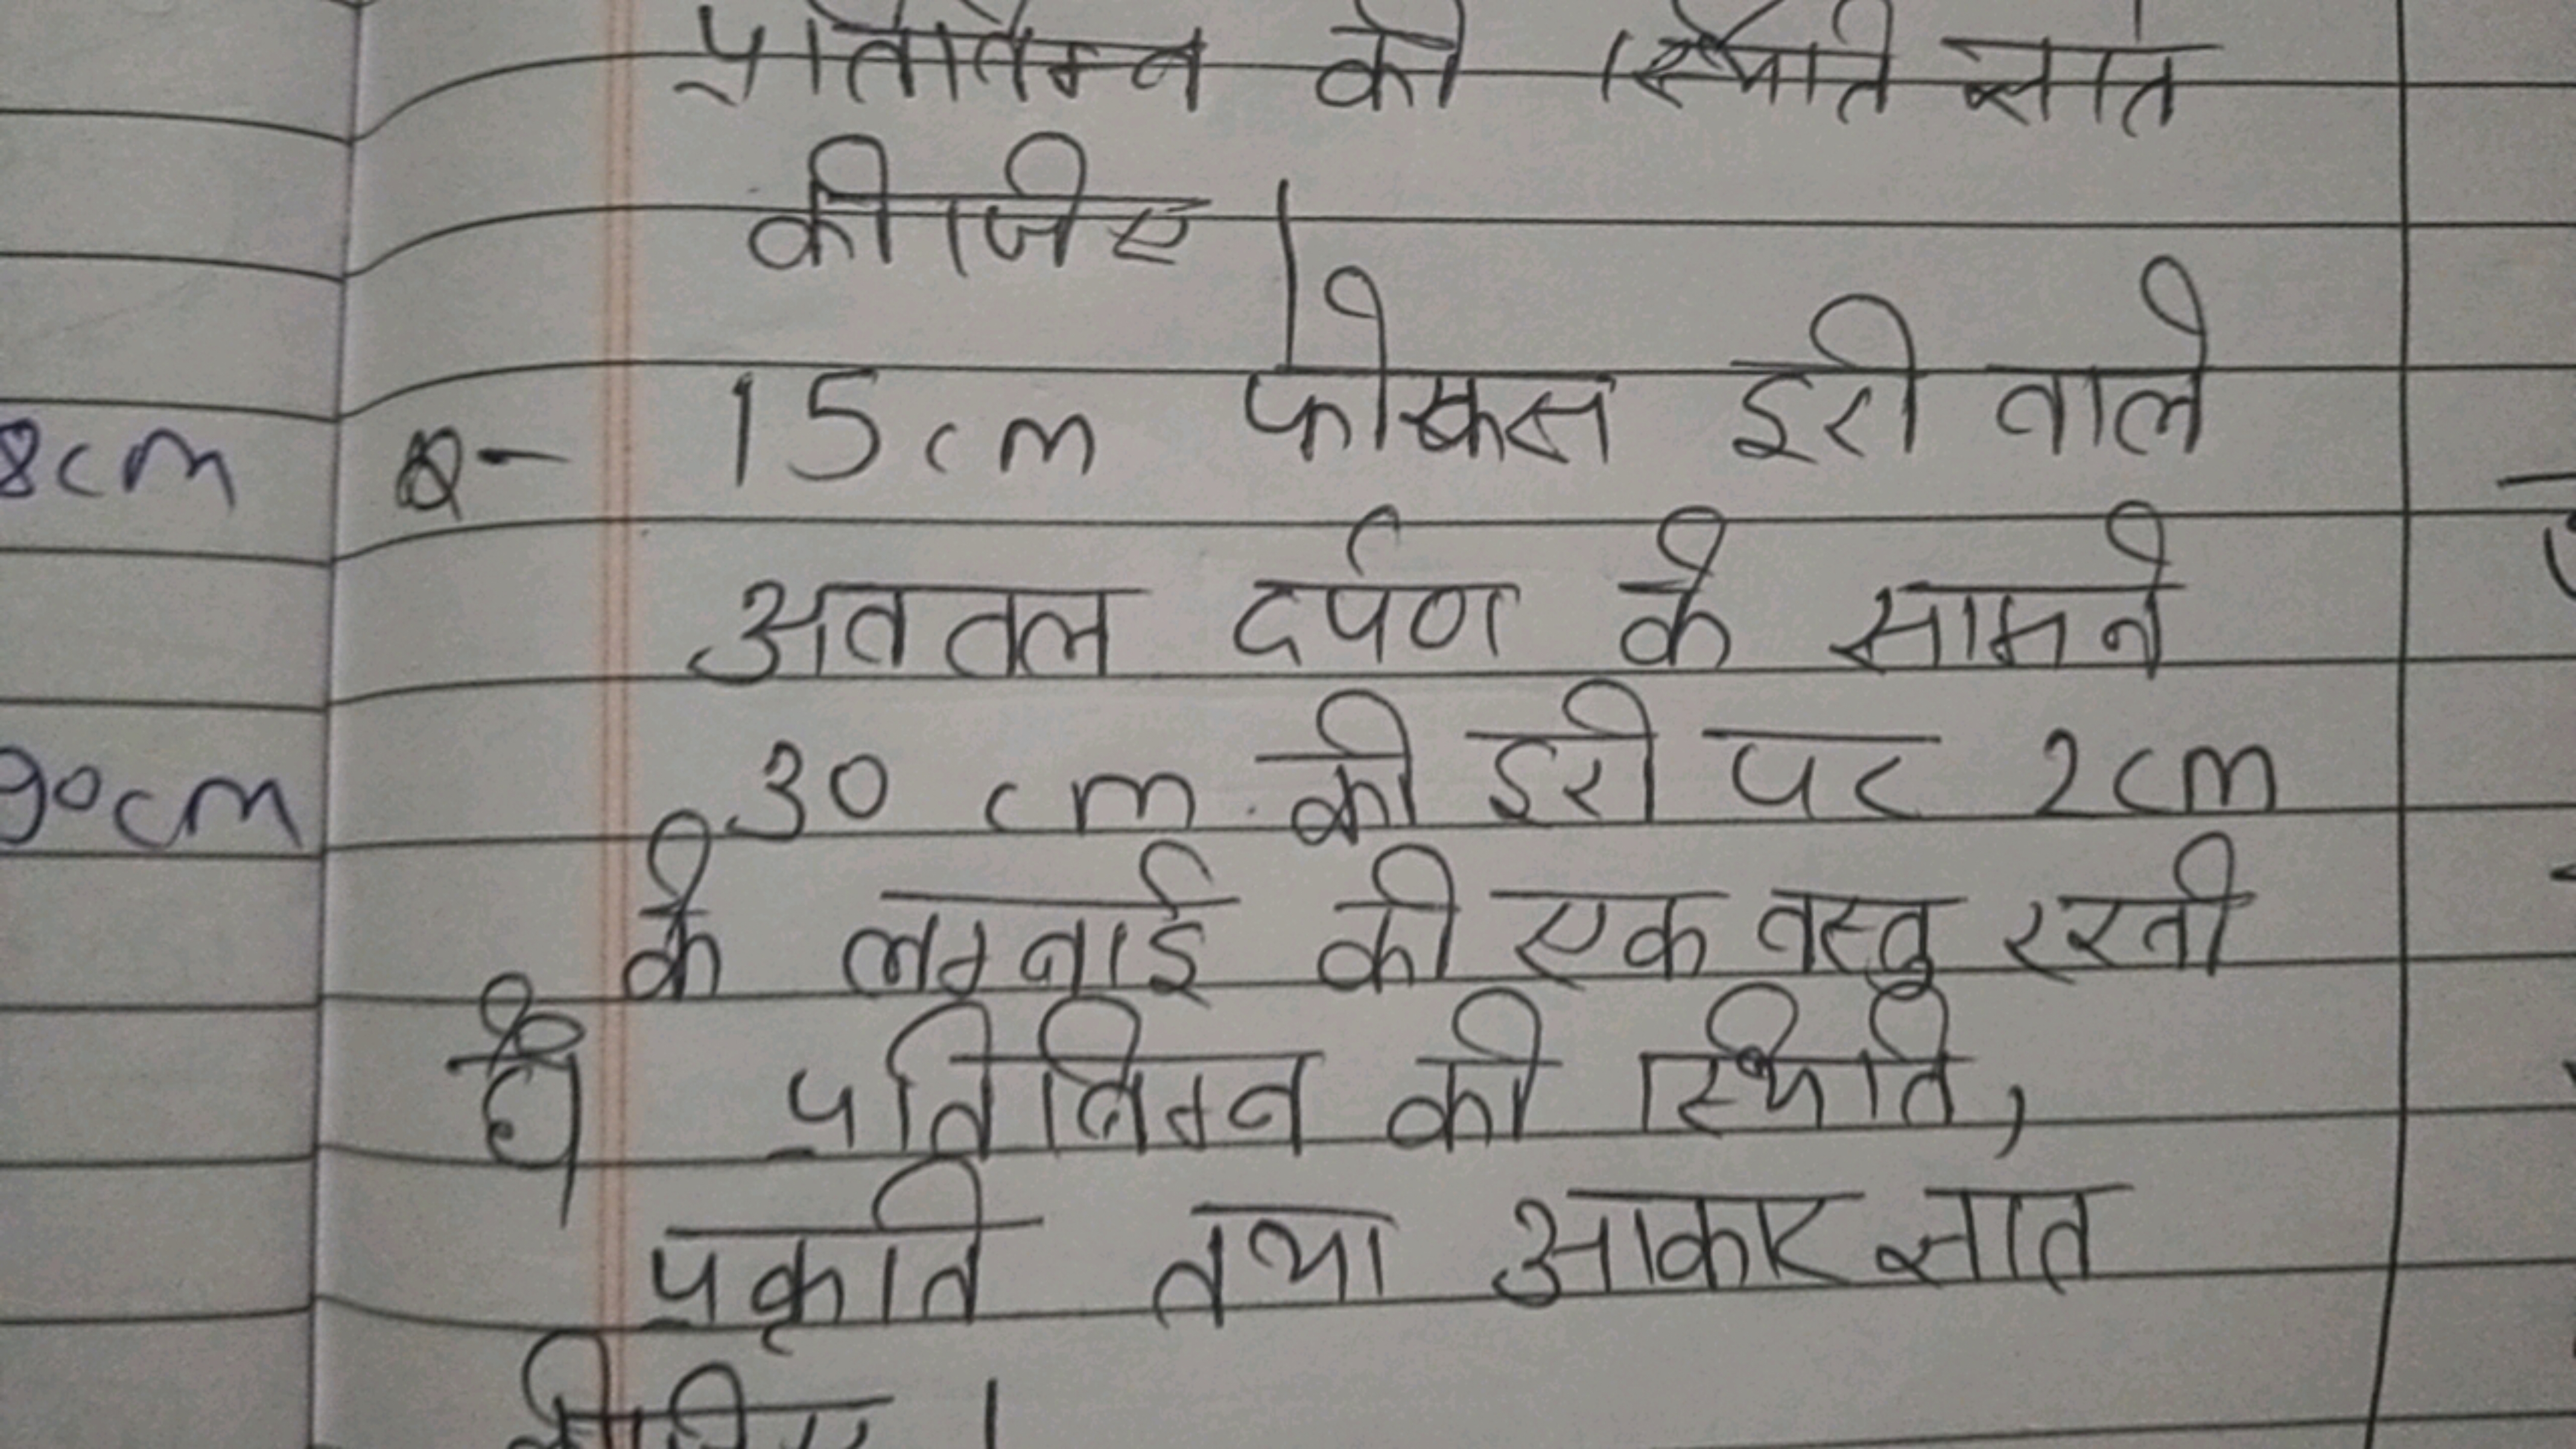 प्रतिबिम्ब की स्थिति ज्ञात
कीजिए |
8cm
Q- 15cm फोकस दूरी वाले
अवतल दर्पण के सामने
90cm
30 cm की दूरी पर 2cm
के लम्बाई की एक वस्तु रखी
है। प्रतिबिम्ब की स्थिति,
प्रकृति तथा आकार ज्ञात
कीजिए |